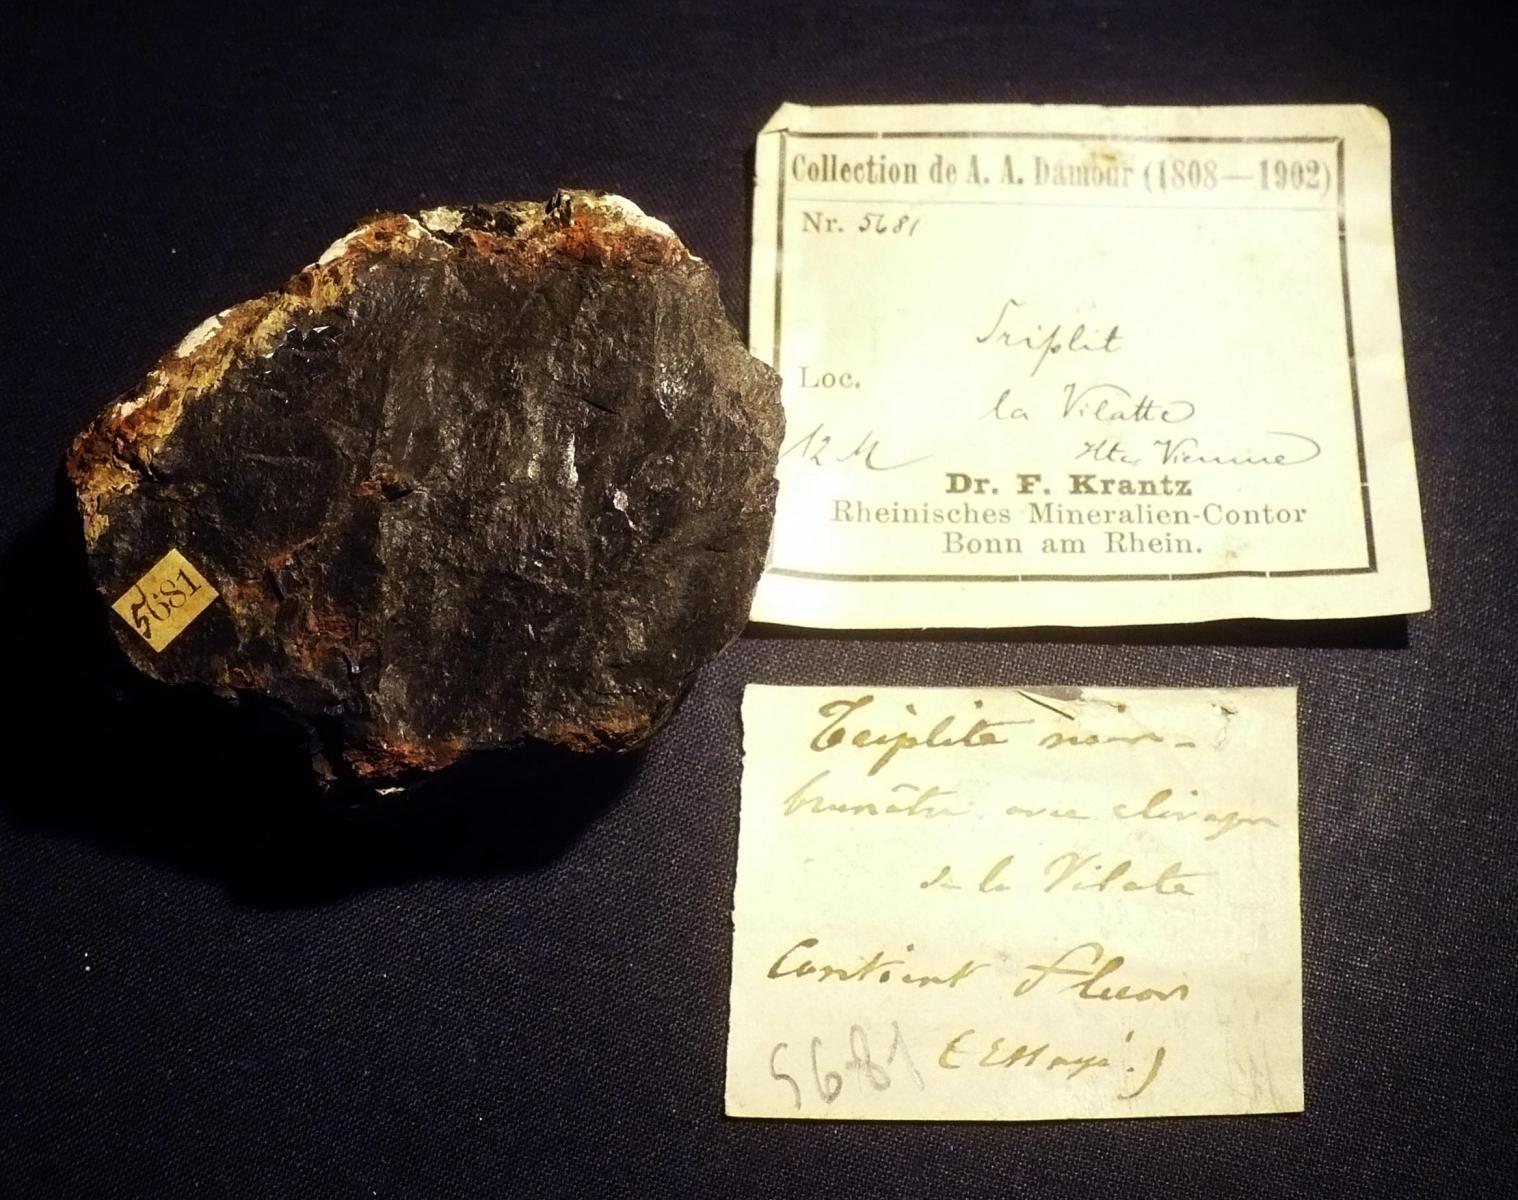 5681
Collection de A. A. Damour (1808—1902)
Nr. 5681
Triplit
Loc.
la Vilatte
12 M
Hte Vienne
Dr. F. Krantz
Rheinisches Mineralien-Contor
Bonn am Rhein.
Triplite noir-
brunâtre avec clivages
de la Vilate
Contient fluor
(Essayé.)
5681